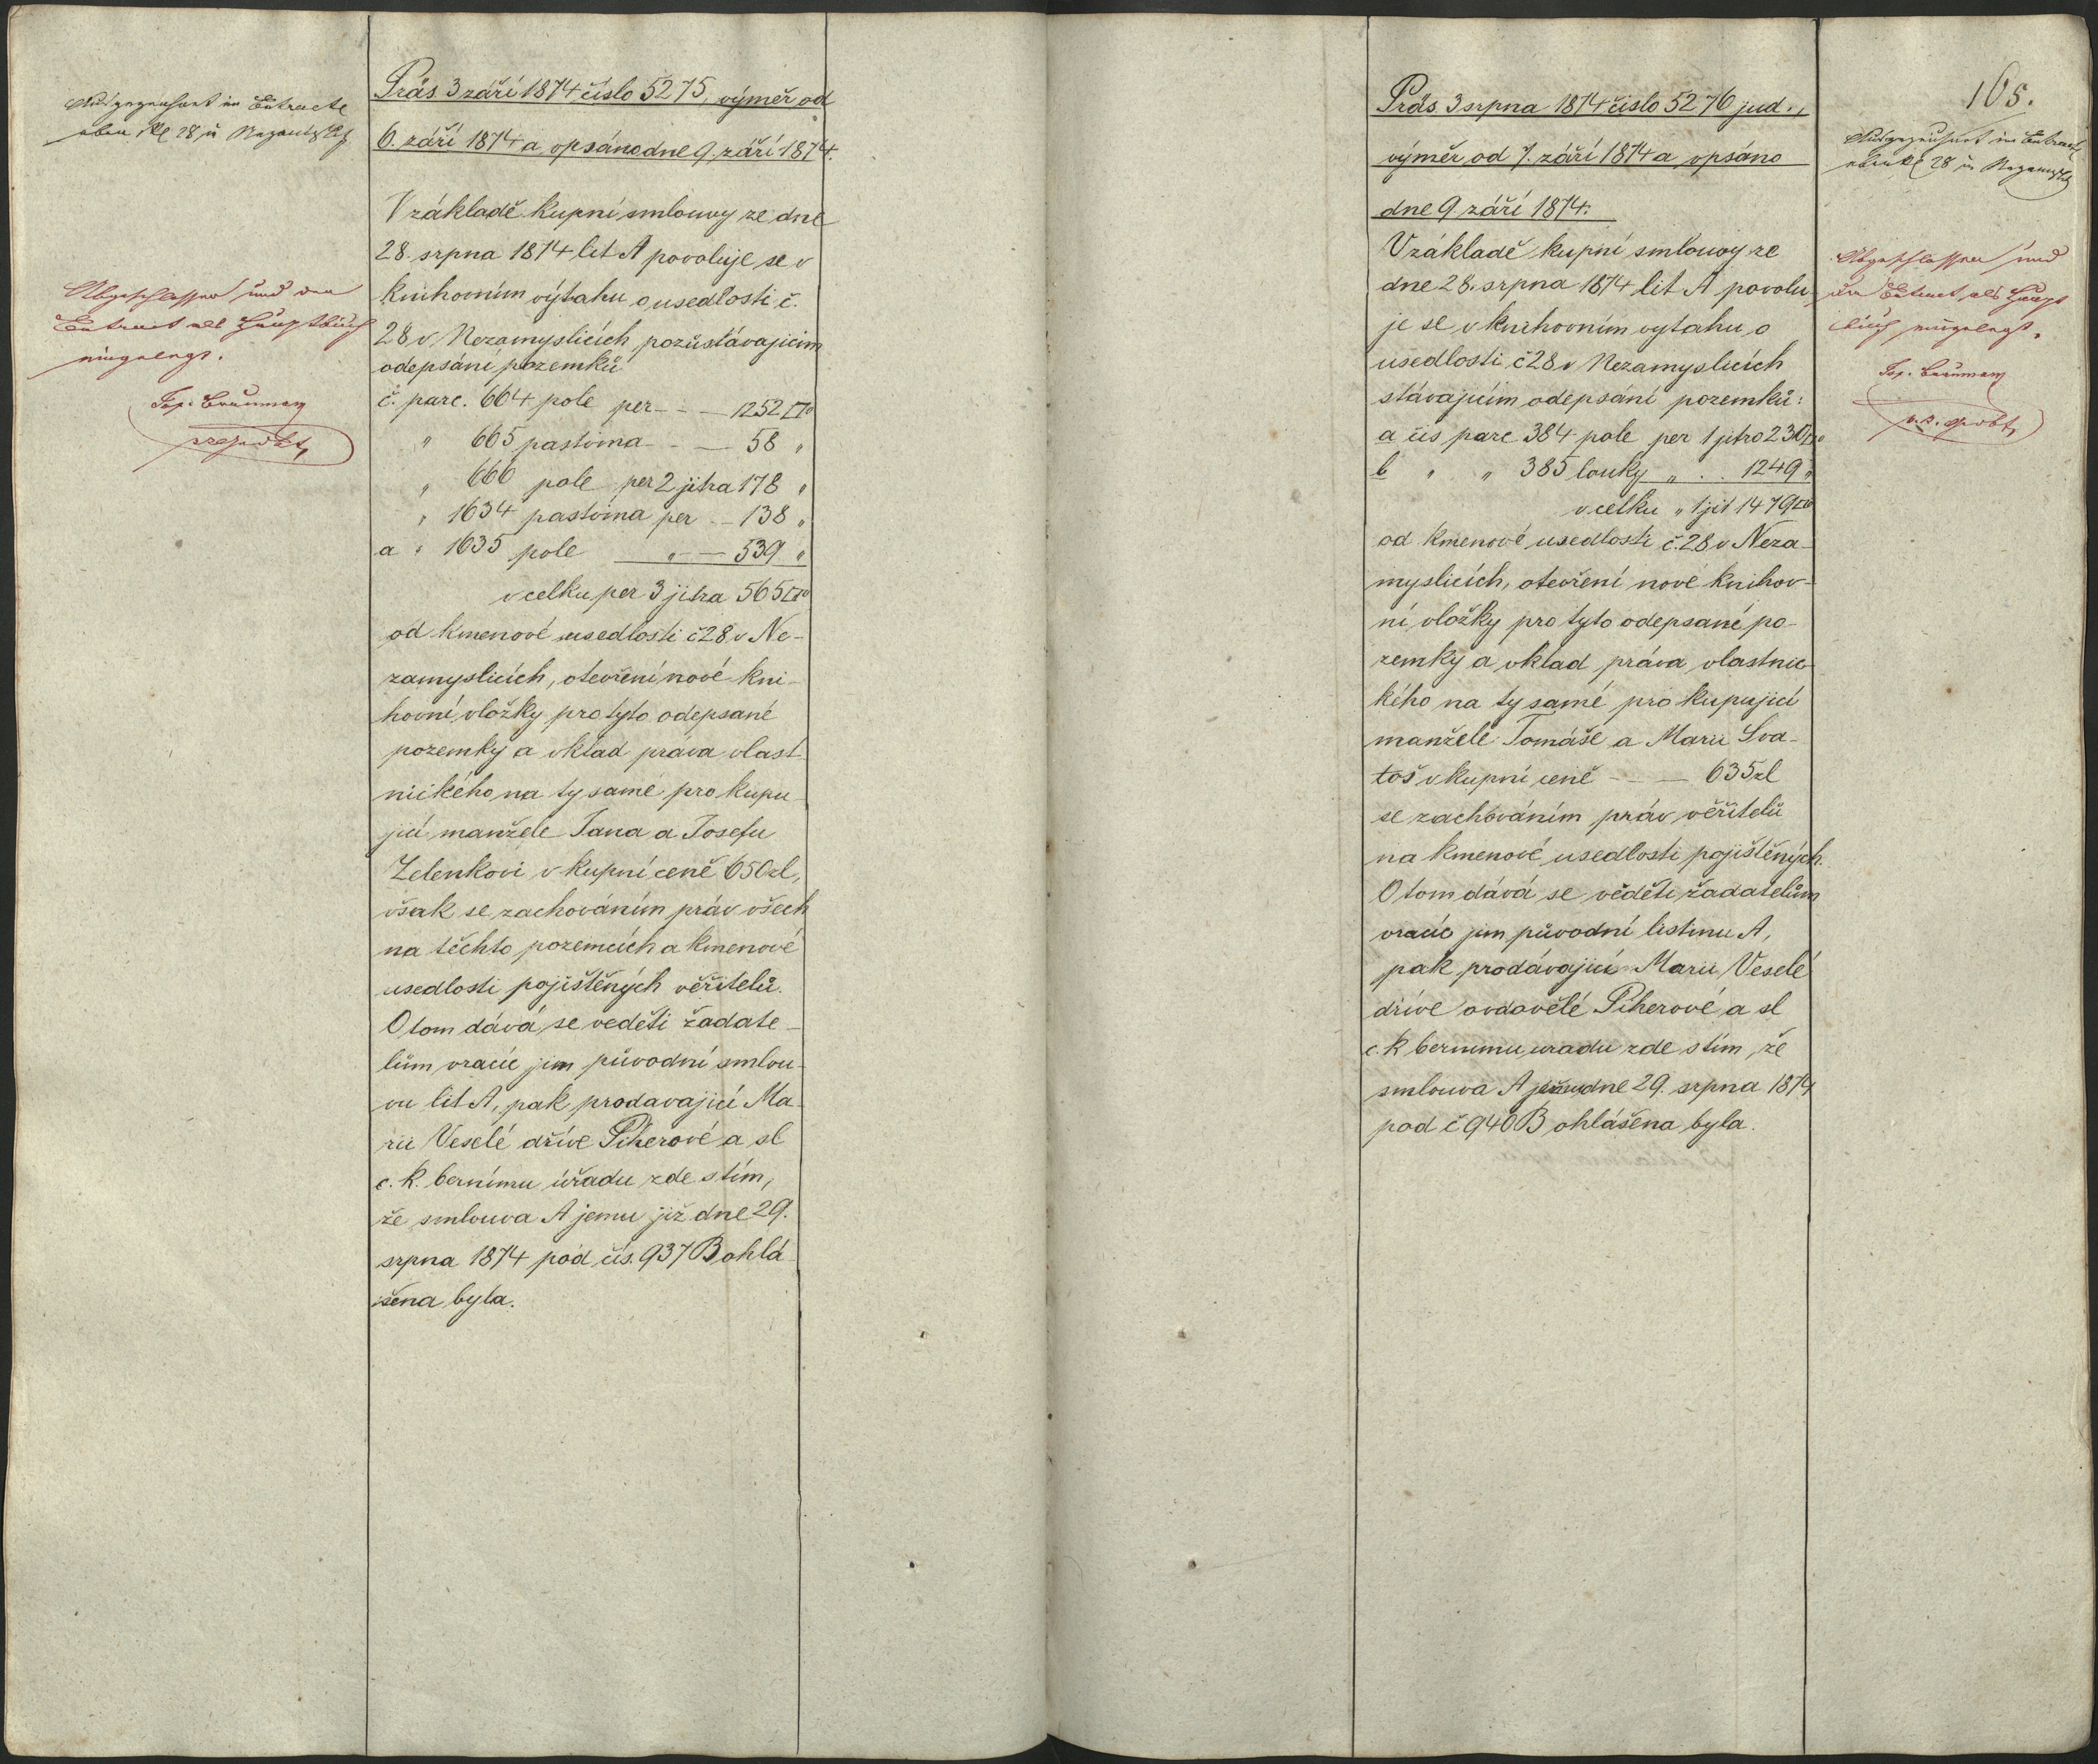 Präs. 3 září 1874 číslo 5275, výměr od
6. září 1874 a opsáno dne 9. září 1874.
V základě kupní smlouvy ze dne
28. srpna 1874 lit A povoluje se v
knihovním výtahu o usedlosti č.
28 v Nezamyslicích, pozůstávajícím
odepsání pozemků
č. parc. 664 pole per - - - 1252 □°
" 665 pastvina - - - 58 "
" 666 pole per 2 jitra 178 "
" 1634 pastvina per - - 138 "
a " 1635 pole " - 539 "
v celku per 3 jitra 565 □°
od kmenové usedlosti č 28 v Ne-
zamyslicích, otevření nové kni-
hovní vložky pro tyto odepsané
pozemky a vklad práva vlast-
nického na ty samé pro kupu-
jící manžele Jana a Josefu
Zelenkovi v kupní ceně 650 zl,
však se zachováním práv všech
na těchto pozemcích a kmenové
usedlosti pojištěných věřitelů.
O tom dává se veděti žadate-
lům vracíc jim původní smlou-
vu lit A, pak prodavající Ma-
rii Veselé dříve Piherové a sl
c. k. bernímu úřadu zde s tím,
že smlouva A jemu již dne 29.
srpna 1874 pod čís. 937 B ohlá-
šena byla.
Ausgezeichnet im Extracte
oben NC 28 in
Abgeschlossen und den
Extract als Hauptbuch
eingelegt.
165.
Präs 3 srpna 1874 číslo 5276 jud.,
výměr od 7. září 1874 a opsáno
dne 9 září 1874.
V základě kupní smlouvy ze
dne 28. srpna 1874 lit A povolu-
je se v knihovním vytahu o
usedlosti č 28 v Nezamyslicích
stávajícím odepsání pozemků:
a čís parc 384 pole per 1 jitro 230 □°
b " " 385 louky " . . 1249 "
v celku " 1 jit 1479 □°
od kmenové usedlosti č. 28 v Neza-
myslicích, otevření nové knihov-
ní vložky pro tyto odepsané po-
zemky a vklad práva vlastnic-
kého na ty samé pro kupující
manžele Tomáše a Marii Sva-
toš v kupní ceně - - - 635 zl
se zachováním práv věřitelů
na kmenové usedlosti pojištěných.
O tom dává se věděti žadatelům
vracíc jim původní listinu A,
pak prodávající Marii Veselé
dříve ovdovělé Piherové a sl
c. k bernímu uradu zde s tím, že
smlouva A dne 29. srpna 1874
pod č 940 B ohlášena byla.
Ausgezeichnet im Extracte
oben NC 28 in
Abgeschlossen und
den Extract als Haupt
buch eingelegt.